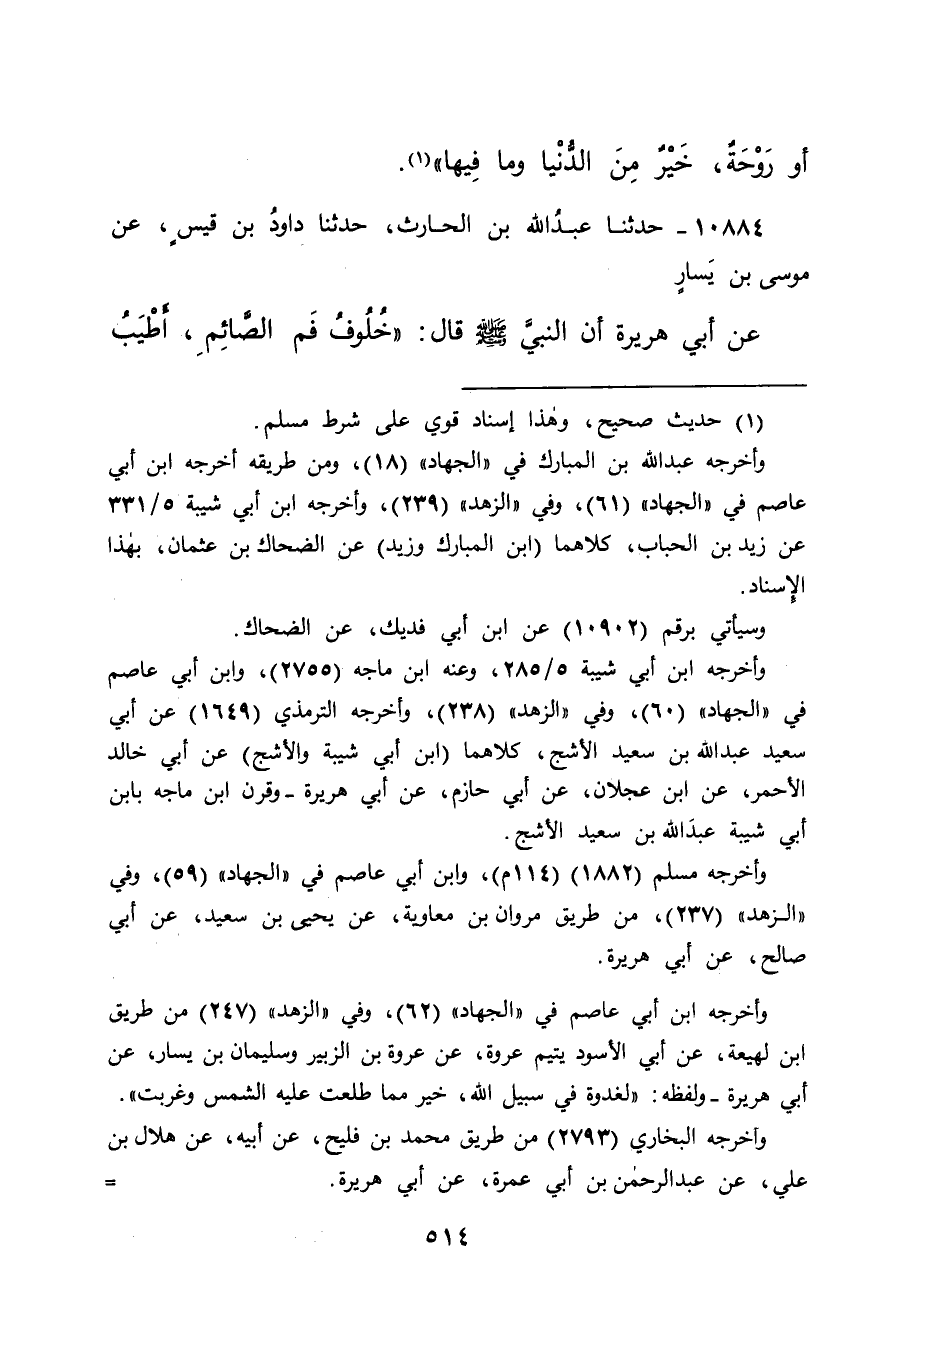 أو رَوْحَةٌ، خَيْرٌ مِنَ الدُّنْيا وما فِيها»(١).
١٠٨٨٤ ـ حدثنـا عبـدُالله بن الحـارث، حدثنا داودُ بن قيسٍ، عن
موسى بن يَسارٍ
عن أبي هريرة أن النبيَّ ﷺ قال: «خُلُوفُ فَمِ الصَّائِمِ، أَطْيَبُ
(١) حديث صحيح، وهٰذا إسناد قوي على شرط مسلم.
وأخرجه عبدالله بن المبارك في «الجهاد» (١٨)، ومن طريقه أخرجه ابن أبي
عاصم في «الجهاد» (٦١)، وفي «الزهد» (٢٣٩)، وأخرجه ابن أبي شيبة ٣٣١/٥
عن زيد بن الحباب، كلاهما (ابن المبارك وزيد) عن الضحاك بن عثمان، بهٰذا
الإسناد.
وسيأتي برقم (١٠٩٠٢) عن ابن أبي فديك، عن الضحاك.
وأخرجه ابن أبي شيبة ٢٨٥/٥، وعنه ابن ماجه (٢٧٥٥)، وابن أبي عاصم
في «الجهاد» (٦٠)، وفي «الزهد» (٢٣٨)، وأخرجه الترمذي (١٦٤٩) عن أبي
سعيد عبدالله بن سعيد الأشج، كلاهما (ابن أبي شيبة والأشج) عن أبي خالد
الأحمر، عن ابن عجلان، عن أبي حازم، عن أبي هريرة ـ وقرن ابن ماجه بابن
أبي شيبة عبدَالله بن سعيد الأشج.
وأخرجه مسلم (١٨٨٢) (١١٤م)، وابن أبي عاصم في «الجهاد» (٥٩)، وفي
«الـزهد» (٢٣٧)، من طريق مروان بن معاوية، عن يحيى بن سعيد، عن أبي
صالح، عن أبي هريرة.
وأخرجه ابن أبي عاصم في «الجهاد» (٦٢)، وفي «الزهد» (٢٤٧) من طريق
ابن لهيعة، عن أبي الأسود يتيم عروة، عن عروة بن الزبير وسليمان بن يسار، عن
أبي هريرة ـ ولفظه: «لغدوة في سبيل الله، خير مما طلعت عليه الشمس وغربت».
وأخرجه البخاري (٢٧٩٣) من طريق محمد بن فليح، عن أبيه، عن هلال بن
علي، عن عبدالرحمٰن بن أبي عمرة، عن أبي هريرة. =
٥١٤